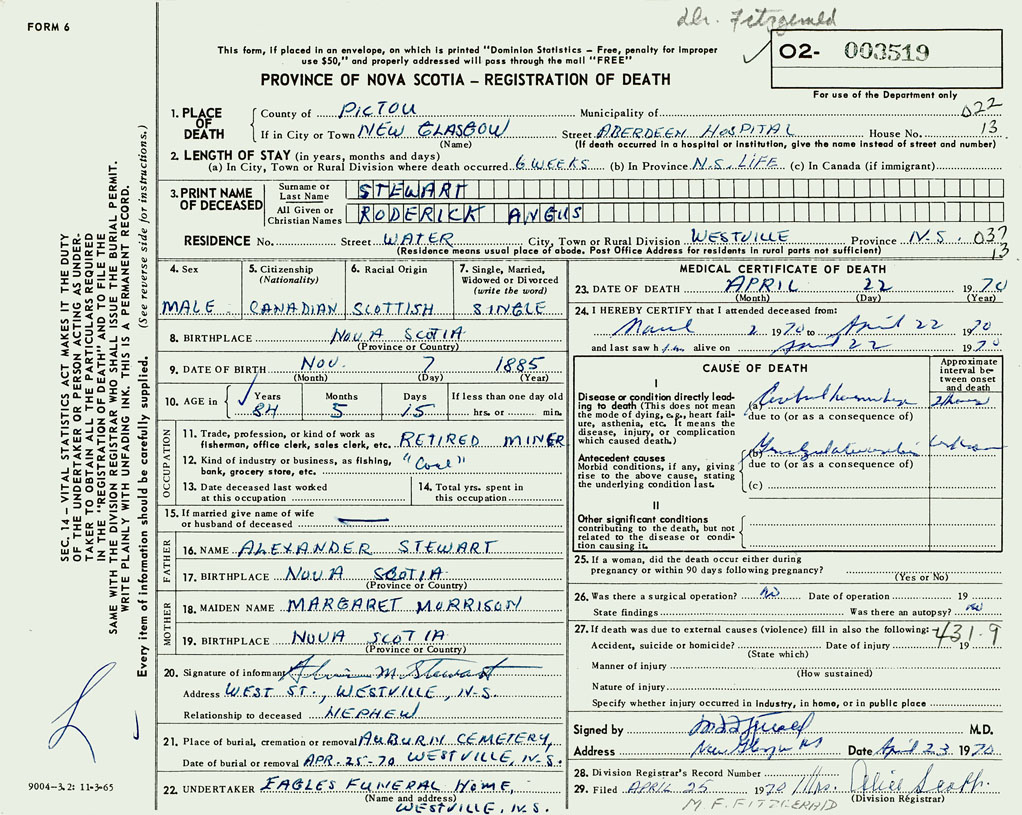 Dr. Fitzgerald
FORM 6
This form, if placed in an envelope, on which is printed "Dominion Statistics – Free, penalty for improper
use $50," and properly addressed will pass through the mail "FREE"
O2- 003519
PROVINCE OF NOVA SCOTIA – REGISTRATION OF DEATH
For use of the Department only
1. PLACE OF DEATH
County of PICTOU Municipality of 022
If in City or Town NEW GLASGOW Street ABERDEEN HOSPITAL House No. 13
(Name) (If death occurred in a hospital or institution, give the name instead of street and number)
2. LENGTH OF STAY (in years, months and days)
(a) In City, Town or Rural Division where death occurred 6 WEEKS (b) In Province N.S. LIFE (c) In Canada (if immigrant)
3. PRINT NAME OF DECEASED
Surname or Last Name STEWART
All Given or Christian Names RODERICK ANGUS
RESIDENCE No. Street WATER City, Town or Rural Division WESTVILLE Province N.S. 037
(Residence means usual place of abode. Post Office Address for residents in rural parts not sufficient) 13
4. Sex
MALE
5. Citizenship (Nationality)
CANADIAN
6. Racial Origin
SCOTTISH
7. Single, Married, Widowed or Divorced (write the word)
SINGLE
8. BIRTHPLACE NOVA SCOTIA
(Province or Country)
9. DATE OF BIRTH NOV. 7 1885
(Month) (Day) (Year)
10. AGE in Years Months Days If less than one day old
84 5 15 hrs. or min.
OCCUPATION
11. Trade, profession, or kind of work as
fisherman, office clerk, sales clerk, etc. RETIRED MINER
12. Kind of industry or business, as fishing,
bank, grocery store, etc. "Coal"
13. Date deceased last worked
at this occupation
14. Total yrs. spent in
this occupation
15. If married give name of wife
or husband of deceased
FATHER
16. NAME ALEXANDER STEWART
17. BIRTHPLACE NOVA SCOTIA
(Province or Country)
MOTHER
18. MAIDEN NAME MARGARET MORRISON
19. BIRTHPLACE NOVA SCOTIA
(Province or Country)
20. Signature of informant M. Stewart
Address WEST ST., WESTVILLE, N.S.
Relationship to deceased NEPHEW
21. Place of burial, cremation or removal AUBURN CEMETERY,
Date of burial or removal APR. 25-70 WESTVILLE, N.S.
22. UNDERTAKER EAGLES FUNERAL HOME,
(Name and address)
WESTVILLE, N.S.
MEDICAL CERTIFICATE OF DEATH
23. DATE OF DEATH APRIL 22 1970
(Month) (Day) (Year)
24. I HEREBY CERTIFY that I attended deceased from:
2 1970 to April 22 1970
and last saw him alive on April 22 1970
CAUSE OF DEATH
Approximate interval between onset and death
I
Disease or condition directly leading to death (This does not mean
the mode of dying, e.g., heart failure, asthenia, etc. It means the
disease, injury, or complication
which caused death.)
(a) Cerebral hemorrhage
due to (or as a consequence of)
Antecedent causes
Morbid conditions, if any, giving
rise to the above cause, stating
the underlying condition last.
(b)
due to (or as a consequence of)
(c)
II
Other significant conditions
contributing to the death, but not
related to the disease or condition causing it.
25. If a woman, did the death occur either during
pregnancy or within 90 days following pregnancy?
(Yes or No)
26. Was there a surgical operation? no Date of operation 19
State findings Was there an autopsy? no
27. If death was due to external causes (violence) fill in also the following: 431.9
Accident, suicide or homicide? Date of injury 19
(State which)
Manner of injury
(How sustained)
Nature of injury
Specify whether injury occurred in industry, in home, or in public place
Signed by M.D.
Address New Glasgow NS Date April 23 1970
28. Division Registrar's Record Number
29. Filed APRIL 25 1970 Mrs. Alice Scott
(Division Registrar)
M. F. FITZGERALD
SEC. 14 – VITAL STATISTICS ACT MAKES IT THE DUTY
OF THE UNDERTAKER OR PERSON ACTING AS UNDERTAKER TO OBTAIN ALL THE PARTICULARS REQUIRED
IN THE "REGISTRATION OF DEATH" AND TO FILE THE
SAME WITH THE DIVISION REGISTRAR WHO SHALL ISSUE THE BURIAL PERMIT.
WRITE PLAINLY WITH UNFADING INK. THIS IS A PERMANENT RECORD.
Every item of information should be carefully supplied. (See reverse side for instructions.)
9004–3.2: 11-3-65